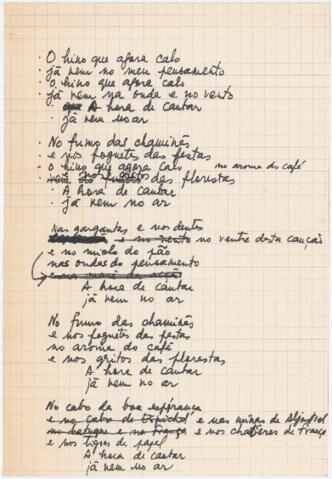 · O hino que agora calo
· já vem no meu pensamento
· o hino que agora calo
· já vem na onda e no vento
que A hora de cantar
· já vem no ar
· No fumo das chaminés
· e nos foguetes das festas
· o hino que agora calo no aroma do café
· e nos gritos das florestas
· A hora de cantar
· já vem no ar
Nas gargantas e nos dentes
e no vento no ventre desta canção
e no miolo do pão
nas ondas do pensamento
A hora de cantar
já vem no ar
No fumo das chaminés
e nos foguetes das festas
no aroma do café
e nos gritos das florestas
A hora de cantar
já vem no ar
No cabo da boa esperança
e no cabo de Espichel e nas minas de Aljustrel
e na França e nos de França
e nos tigres de papel
A hora de cantar
já vem no ar